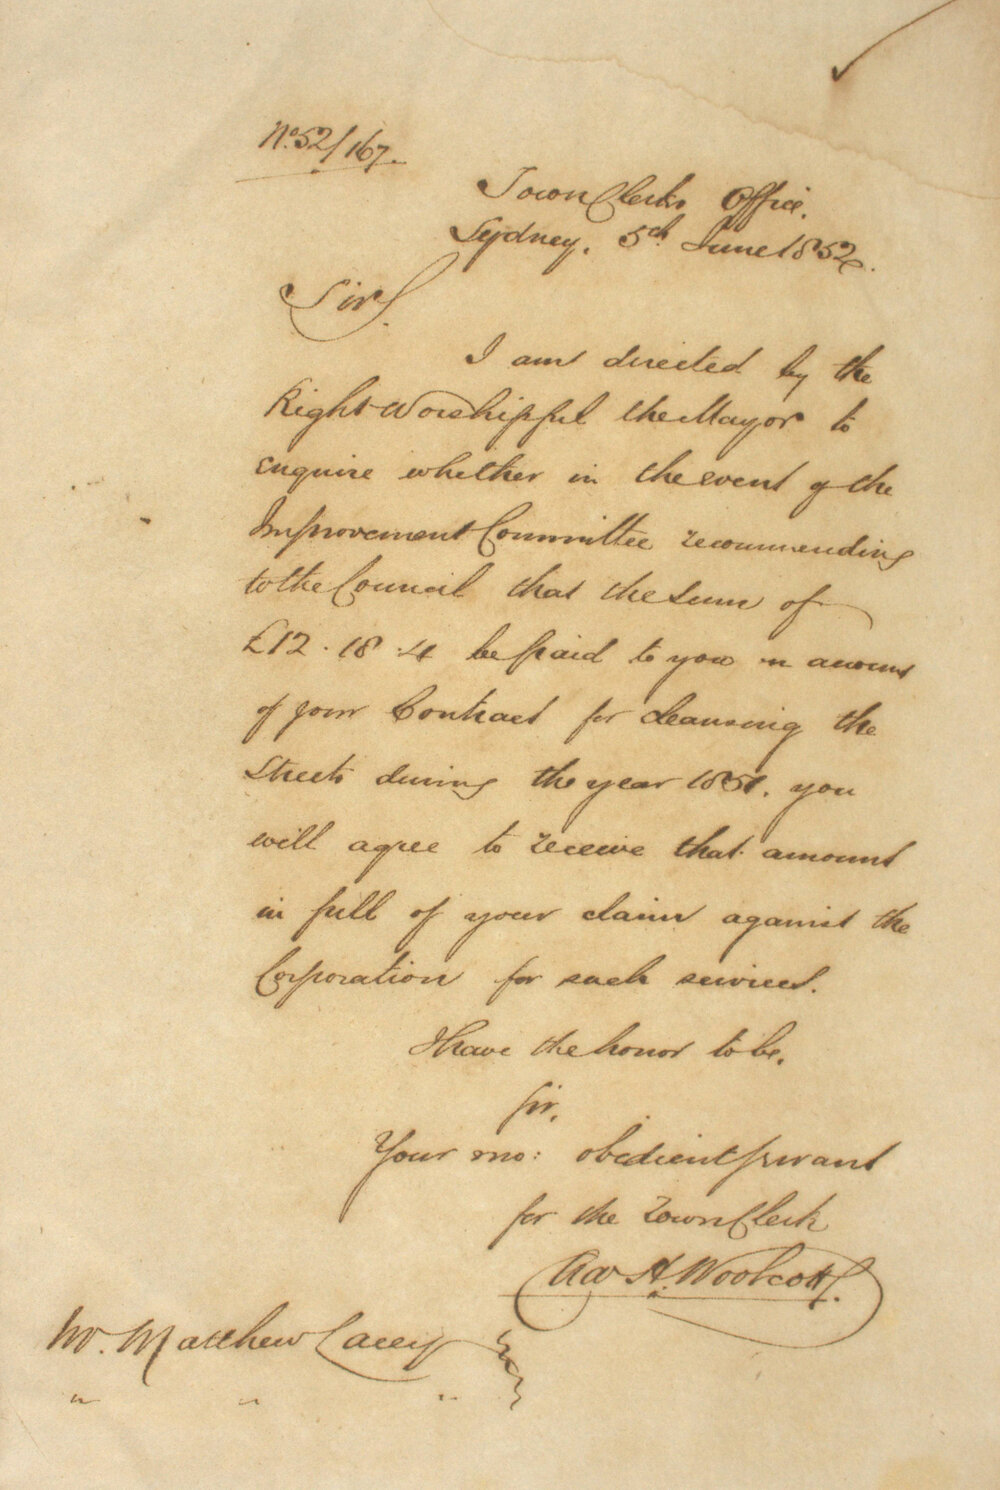 No. 52/167.
Town Clerks Office.
Sydney. 5th June 1852.
Sir,
I am directed by the
Right Worshipful the Mayor to
enquire whether in the event of the
Improvement Committee recommending
to the Council that the sum of
£12.18.4 be paid to you on account
of your Contract for cleansing the
Streets during the year 1851. you
will agree to receive that amount
in full of your claim against the
Corporation for such services.
I have the honor to be,
Sir,
Your mo: obedient Servant
for the Town Clerk
Chas H. Woolcott.
Mr. Matthew Lacey
" " "